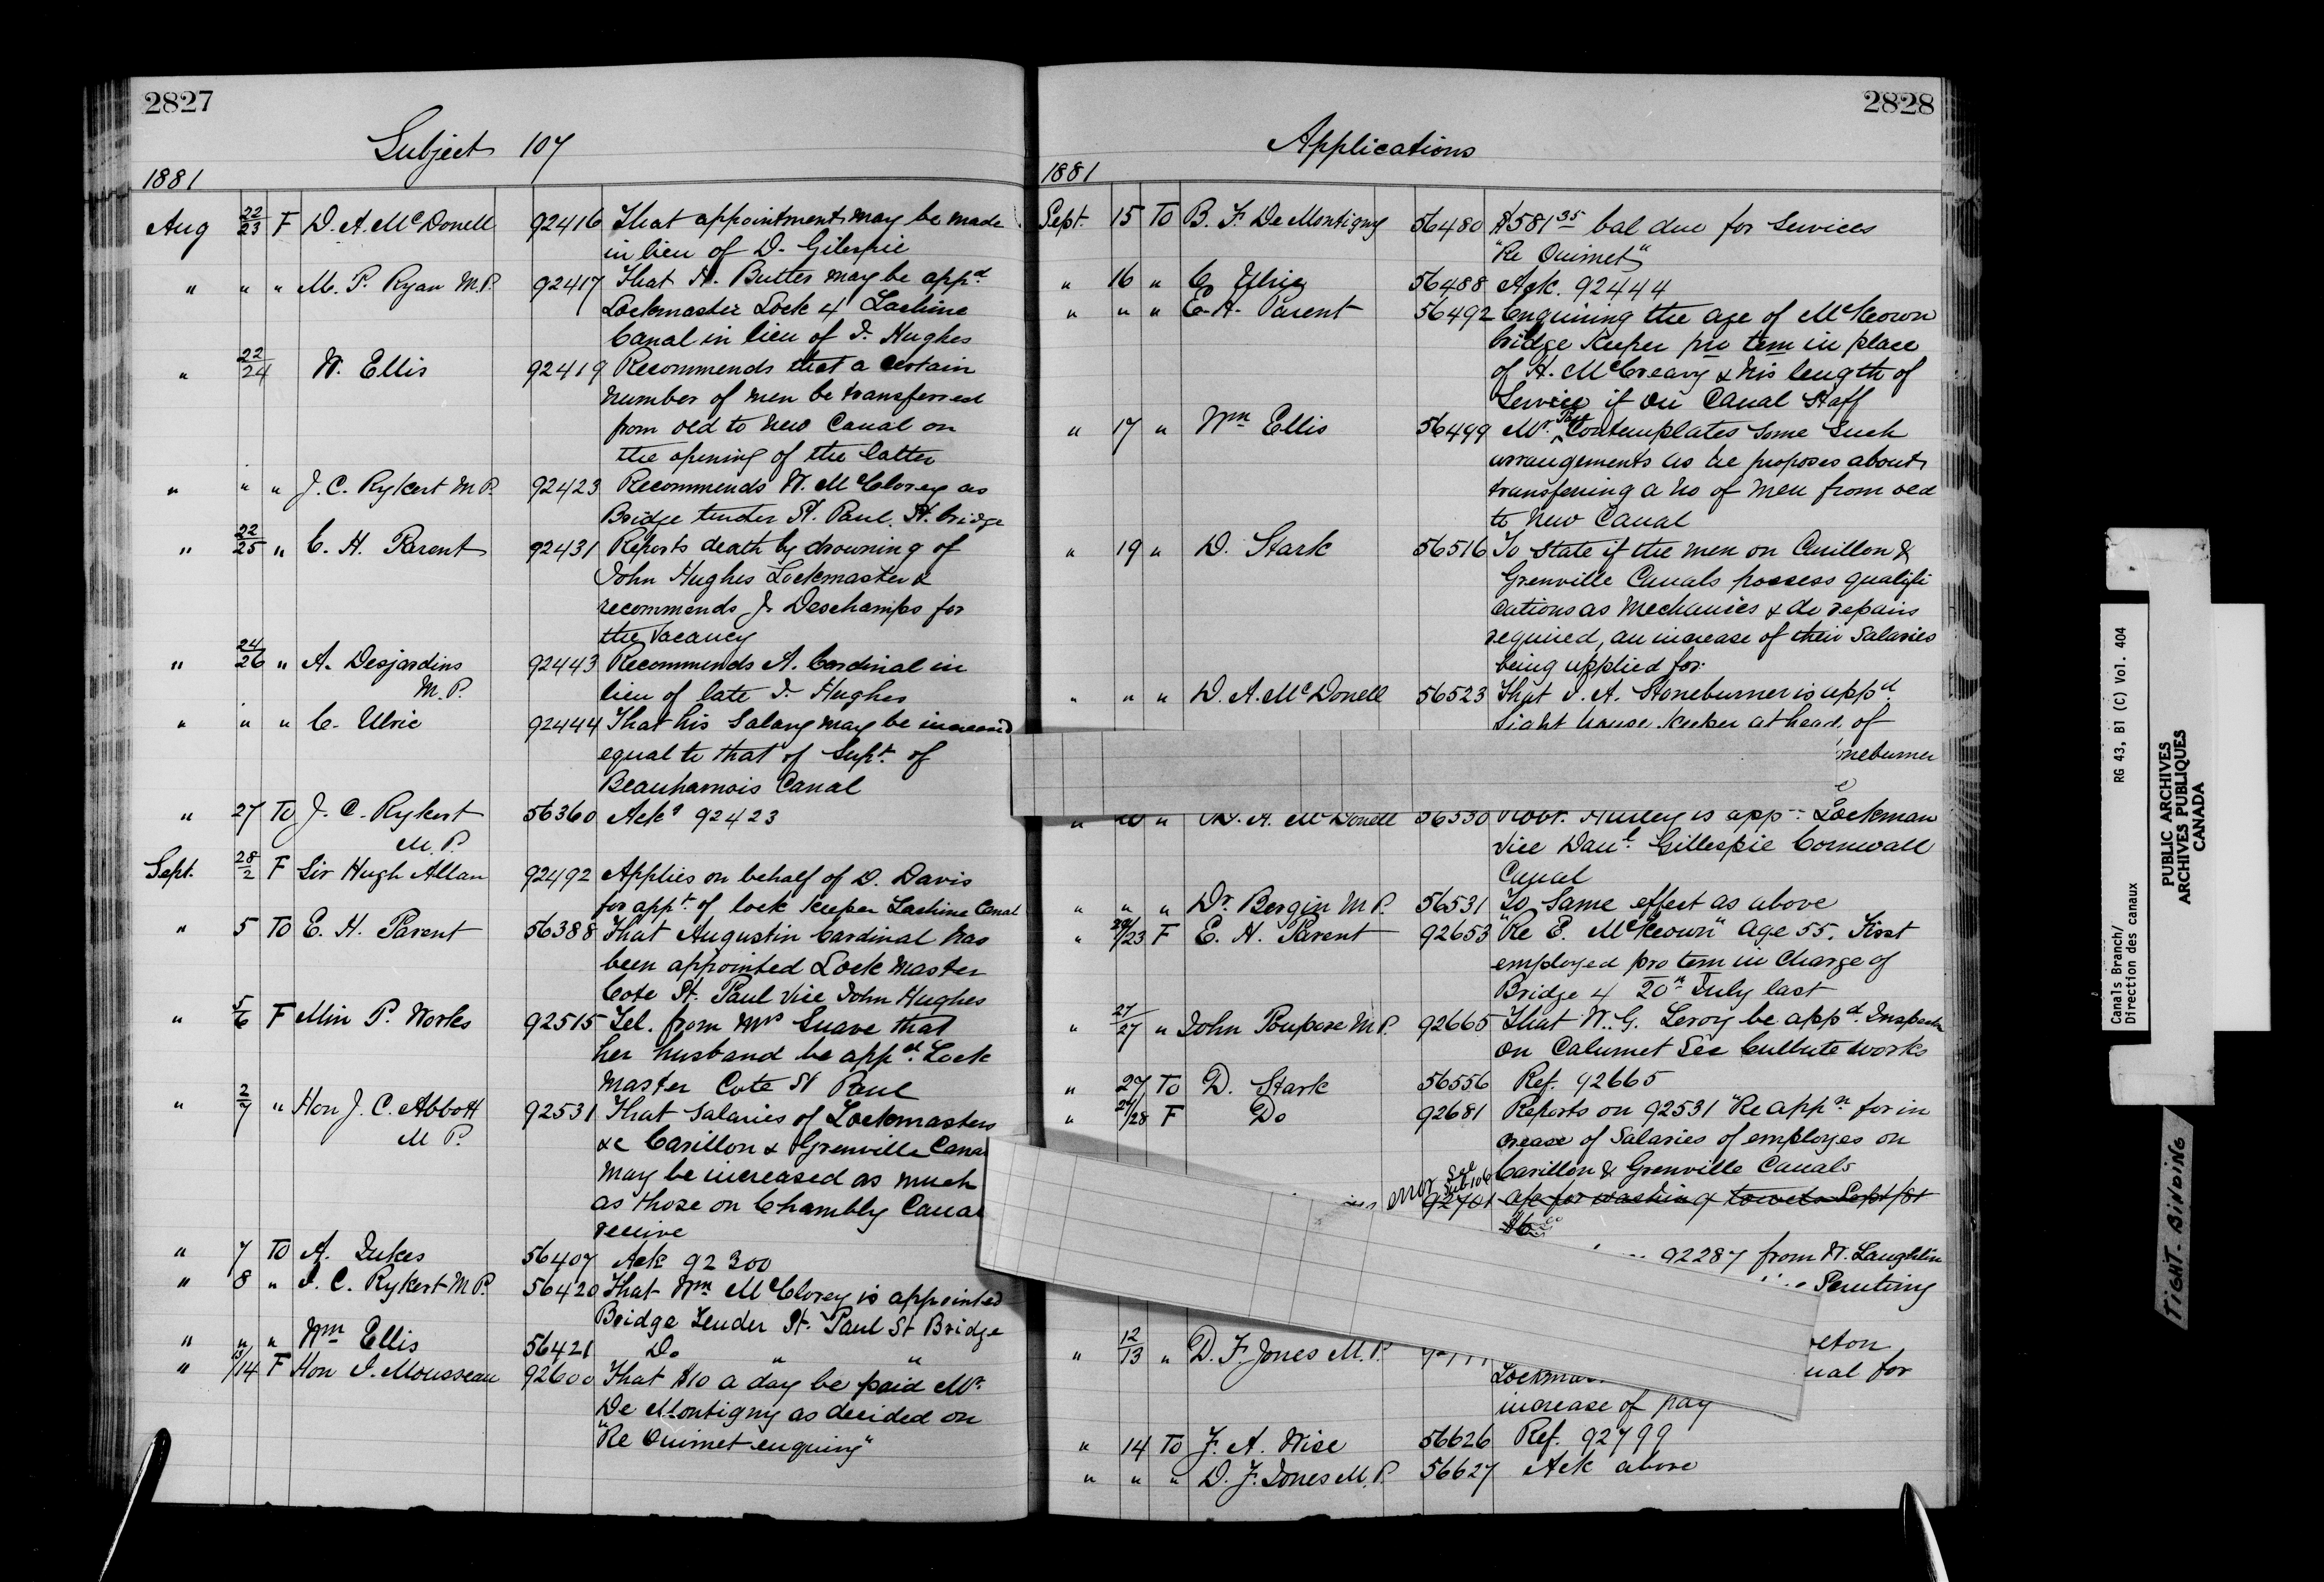 2827
Subject 107
1881
Aug 22/23 F D. A. McDonell 92416 That appointment may be made
in lieu of D. Gilespie
" " " M. P. Ryan M.P. 92417 That H. Butler may be appd
Lockmaster Lock 4 Lachine
Canal in lieu of J. Hughes
" 22/24 W. Ellis 92419 Recommends that a certain
number of men be transferred
from old to new Canal on
the opening of the latter
" " " J. C. Rykert M.P. 92423 Recommends W. McClorey as
Bridge tender St. Paul St. bridge
" 22/25 " C. H. Parent 92431 Reports death by drowning of
John Hughes Lockmaster &
recommends J. Deschamps for
the vacancy
" 24/26 " A. Desjardins 92443 Recommends A. Cardinal in
M.P. lieu of late J. Hughes
" " " C. Ulric 92444 That his Salary may be increased
equal to that of Supt. of
Beauharnois Canal
" 27 To J. C. Rykert 56360 Ackg 92423
M.P.
Sept. 28/2 F Sir Hugh Allan 92492 Applies on behalf of D. Davis
for appt. of lock keeper Lachine Canal
" 5 To E. H. Parent 56388 That Augustin Cardinal has
been appointed Lock Master
Cote St. Paul vice John Hughes
" 5/6 F Min P. Works 92515 Tel. from Mrs Suave that
her husband be appd. Lock
Master Cote St Paul
" 2/7 " Hon J. C. Abbott 92531 That Salaries of Lockmasters
M P. &c Carillon & Grenville Cana
may be increased as much
as those on Chambly Cana
receive
" 7 To A. Jukes 56407 Ack 92300
" 8 " J. C. Rykert M P. 56420 That Wm McClorey is appointed
Bridge Tender St. Paul St Bridge
" " " Wm Ellis 56421 Do " "
" 13/14 F Hon J. Mousseau 92600 That $10 a day be paid Mr.
De Montigny as decided on
"Re Ouimet enquiry"
2828
Applications
1881
Sept. 15 To B. F. De Montigny 56480 $581 35 bal due for services
"Re Ouimet"
" 16 " C Ulric 56488 Ack. 92444
" " " E. H. Parent 56492 Enquiring the age of McKeown
bridge keeper pro tem in place
of H. McCreary & his length of
Service if on Canal Staff
" 17 " Wm Ellis 56499 Mr. Page Contemplates some such
arrangements as he proposes about
transferring a no of men from old
to New Canal
" 19 " D. Stark 56516 To state if the men on Carillon &
Grenville Canals possess qualifi
cations as Mechanics & do repairs
required, an increase of their Salaries
being applied for.
" " " D. A. McDonell 56523 That J. A. Stoneburner is appd
Light house keeper at head of
oneburner
" " D. A. McDonell 56530 Robt. Hurley is appd Lockman
vice Danl. Gillespie Cornwall
Canal
" " " Dr. Bergin M P. 56531 To Same effect as above
" 20/23 F E. H. Parent 92653 "Re E. McKeown" Age 55. First
employed pro tem in charge of
Bridge 4 20th July last
" 27/27 " John Poupore M P. 92665 That W. G. Leroy be appd. Inspector
on Calumet See Culbute works
" 27 To D. Stark 56556 Ref. 92665
" 27/28 F Do 92681 Reports on 92531 "Re appn for in
crease of Salaries of employes on
Carillon & Grenville Canals
error See Sub 106 92701 a/c for washing towels Sept/81
$6 00
92287 from W. Laughlin
" 12/13 " D. F. Jones M.P. elton
Lockma ual for
increase of pay
" 14 To F. A. Wise 56626 Ref. 92799
" " " D. F. Jones M.P. 56627 Ack above
Canals Branch/ RG 43, B1 (C) Vol. 404
Direction des canaux
PUBLIC ARCHIVES
ARCHIVES PUBLIQUES
CANADA
TIGHT BINDING